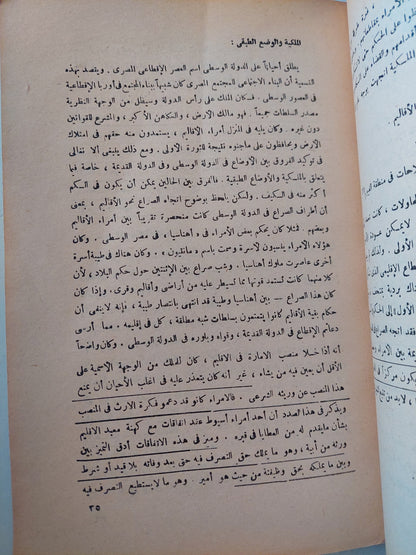 الملكية والوضع الطبقى :
يطلق أحياناً على الدولة الوسطى اسم العصر الإقطاعى المصرى . ويقصد بهذه
التسمية أن البناء الاجتماعى للمجتمع المصرى كان شبيهاً ببناء المجتمع فى أوربا الإقطاعية
فى العصور الوسطى . فسكان الملك على رأس الدولة وسيظل من الوجهة النظرية
مصدر السلطات جميعاً . فهو مالك الأرض ، والكاهن الأكبر ، والمشرع للقوانين
دون غيره . وكان يليه فى المنزل أمراء الأقاليم ، يستمدون منه حقهم فى امتلاك
الأرض ويحصلون على ما جنوه نتيجة للثورة الأولى . ومع ذلك ينبغى ألا نغالى
فى توكيد الفروق بين الأوضاع فى الدولة الوسطى وفى الدولة القديمة ، خاصة فيما
يتعلق بالملكية والأوضاع الطبقية . فالفرق بين الحالين يمكن أن يكون فى السكم
أكثر منه فى السكيف . ولسكن يلحظ بوضوح اتجاه الصراع نحو أفول ، بمعنى
أن أطراف الصراع فى الدولة الوسطى كانت منحصرة تقريباً بين أمراء الأقاليم
وبعضهم . فمثلا كان يحكم بعض الأمراء فى « أهناسيا ، فى مصر الوسطى . وكان
هؤلاء الأمراء يناسبون لأسرة وحدت باسم « مانثيون ، وكان هناك فى طيبة أسرة
أخرى عاصرت ملوك أهناسيا . ونشب صراع بين الإثنتين حول حكم البلاد ، لأن
كلا منهما كانت تستمد قوتها مما تسيطر عليه من أراضى وأقاليم وقرى . وإذا كان
كان هذا الصراع — بين أهناسيا وطيبة قد انتهى بانتصار طيبة ، فإنه لا ينفى أن
حكام بقية الأقاليم كانوا يتمتعون بسلطات شبه مطلقة ، كل فى إقليمه . مما أرسى
دعائم الإقطاع فى الدولة القديمة ، وقواه وبلوره فى الدولة الوسطى . وكان واضحاً
أنه إذا خلا منصب الامارة فى الاقليم ، كان للملك من الوجهة الاسمية على
الأقل أن يعين فيه من يشاء ، غير أنه كان يتعذر عليه فى أغلب الأحيان أن يمنع
هذا المنصب عن وريثه الشرعى . فالأمراء كانو قد دعموا فكرة الارث فى المنصب
ويذكر فى هذا الصدد أن أحد أمراء أسيوط عند اتفاقات مع كهنة معبد الاقليم
بشأن ما يقدم له من العطايا فى قبره . وميز فى هذه الاتفاقات أدق التمييز بين
ورثة من أبية ، وهو ما يملك حق التصرف فيه حتى بعد وفاته بلا قيد أو شرط
وبين ما يملكه بحق وظيفته من حيث هو أمير . وهو ما لا يستطيع التصرف فيه
٣٥